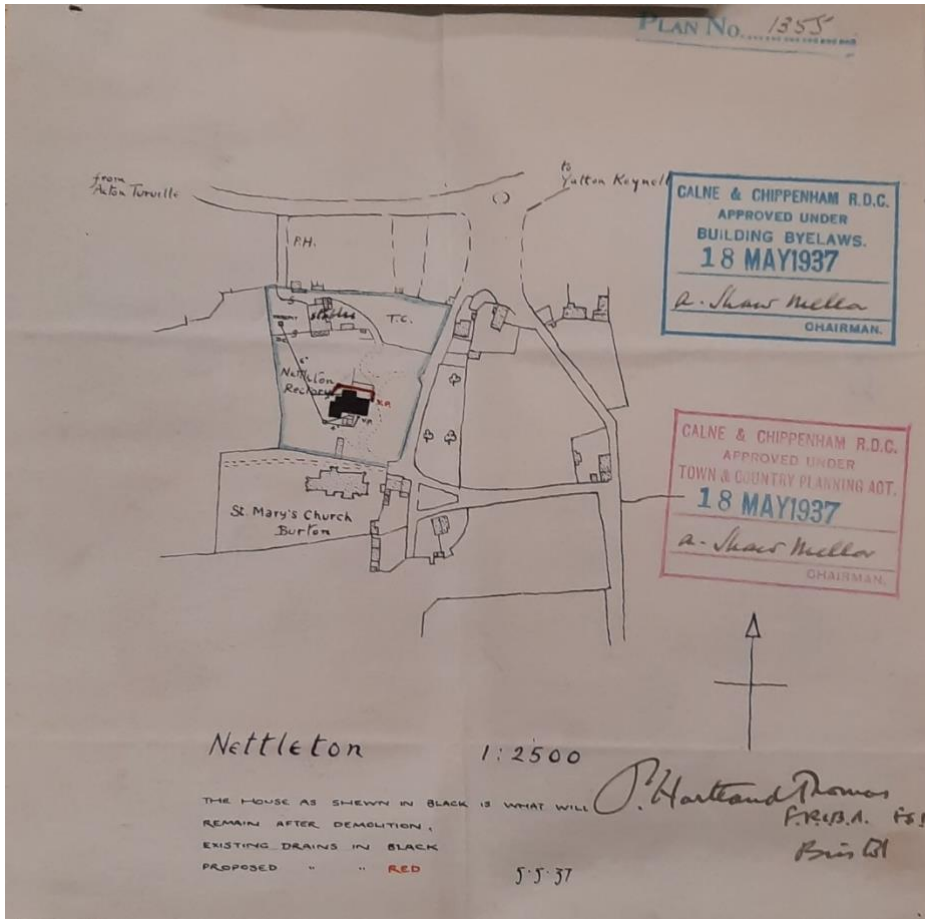 PLAN No. 1355
from
Acton Turville
to
Yatton Keynell
CALNE & CHIPPENHAM R.D.C.
APPROVED UNDER
BUILDING BYELAWS.
18 MAY 1937
a. Shaw Mellor
CHAIRMAN.
P.H.
Stables
T.C.
6"
Nettleton
Rectory
St. Mary's Church
Burton
CALNE & CHIPPENHAM R.D.C.
APPROVED UNDER
TOWN & COUNTRY PLANNING ACT.
18 MAY 1937
a. Shaw Mellor
CHAIRMAN.
Nettleton
1:2500
THE HOUSE AS SHEWN IN BLACK IS WHAT WILL
REMAIN AFTER DEMOLITION,
EXISTING DRAINS IN BLACK
PROPOSED " " RED
5·5·37
P. Hartland Thomas
F.R.I.B.A.
Bristol